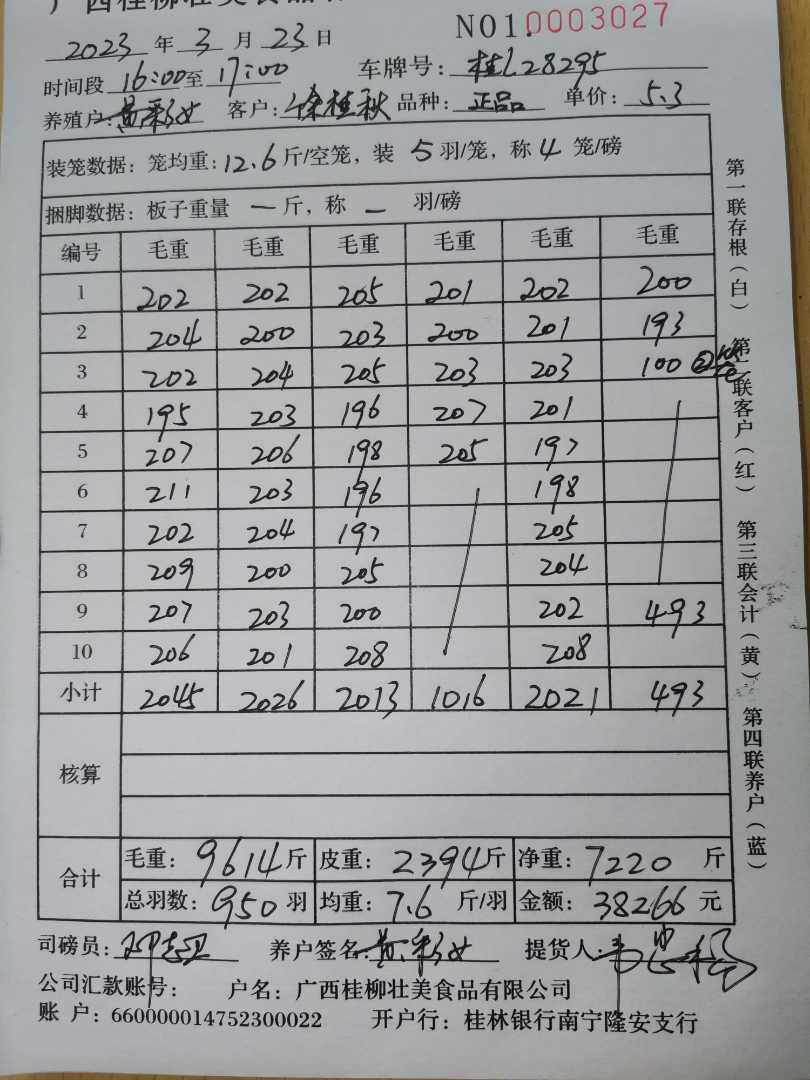 广西桂柳壮美食品
NO1.0003027
2023 年 3 月 23 日
时间段 16:00 至 17:00 车牌号: 桂L28295
养殖户: 黄彩女 客户: 徐桂秋 品种: 正品 单价: 5.3
装笼数据: 笼均重: 12.6 斤/空笼, 装 5 羽/笼, 称 4 笼/磅
捆脚数据: 板子重量 — 斤, 称 — 羽/磅
编号 毛重 毛重 毛重 毛重 毛重 毛重
1 202 202 205 201 202 200
2 204 200 203 200 201 193
3 202 204 205 203 203 100
4 195 203 196 207 201
5 207 206 198 205 197
6 211 203 196 198
7 202 204 197 205
8 209 200 205 204
9 207 203 200 202 493
10 206 201 208 208
小计 2045 2026 2013 1016 2021 493
核算
合计
毛重: 9614 斤 皮重: 2394 斤 净重: 7220 斤
总羽数: 950 羽 均重: 7.6 斤/羽 金额: 38266 元
司磅员: 养户签名: 黄彩女 提货人:
公司汇款账号: 户名: 广西桂柳壮美食品有限公司
账 户: 660000014752300022 开户行: 桂林银行南宁隆安支行
第一联存根(白) 第二联客户(红) 第三联会计(黄) 第四联养户(蓝)